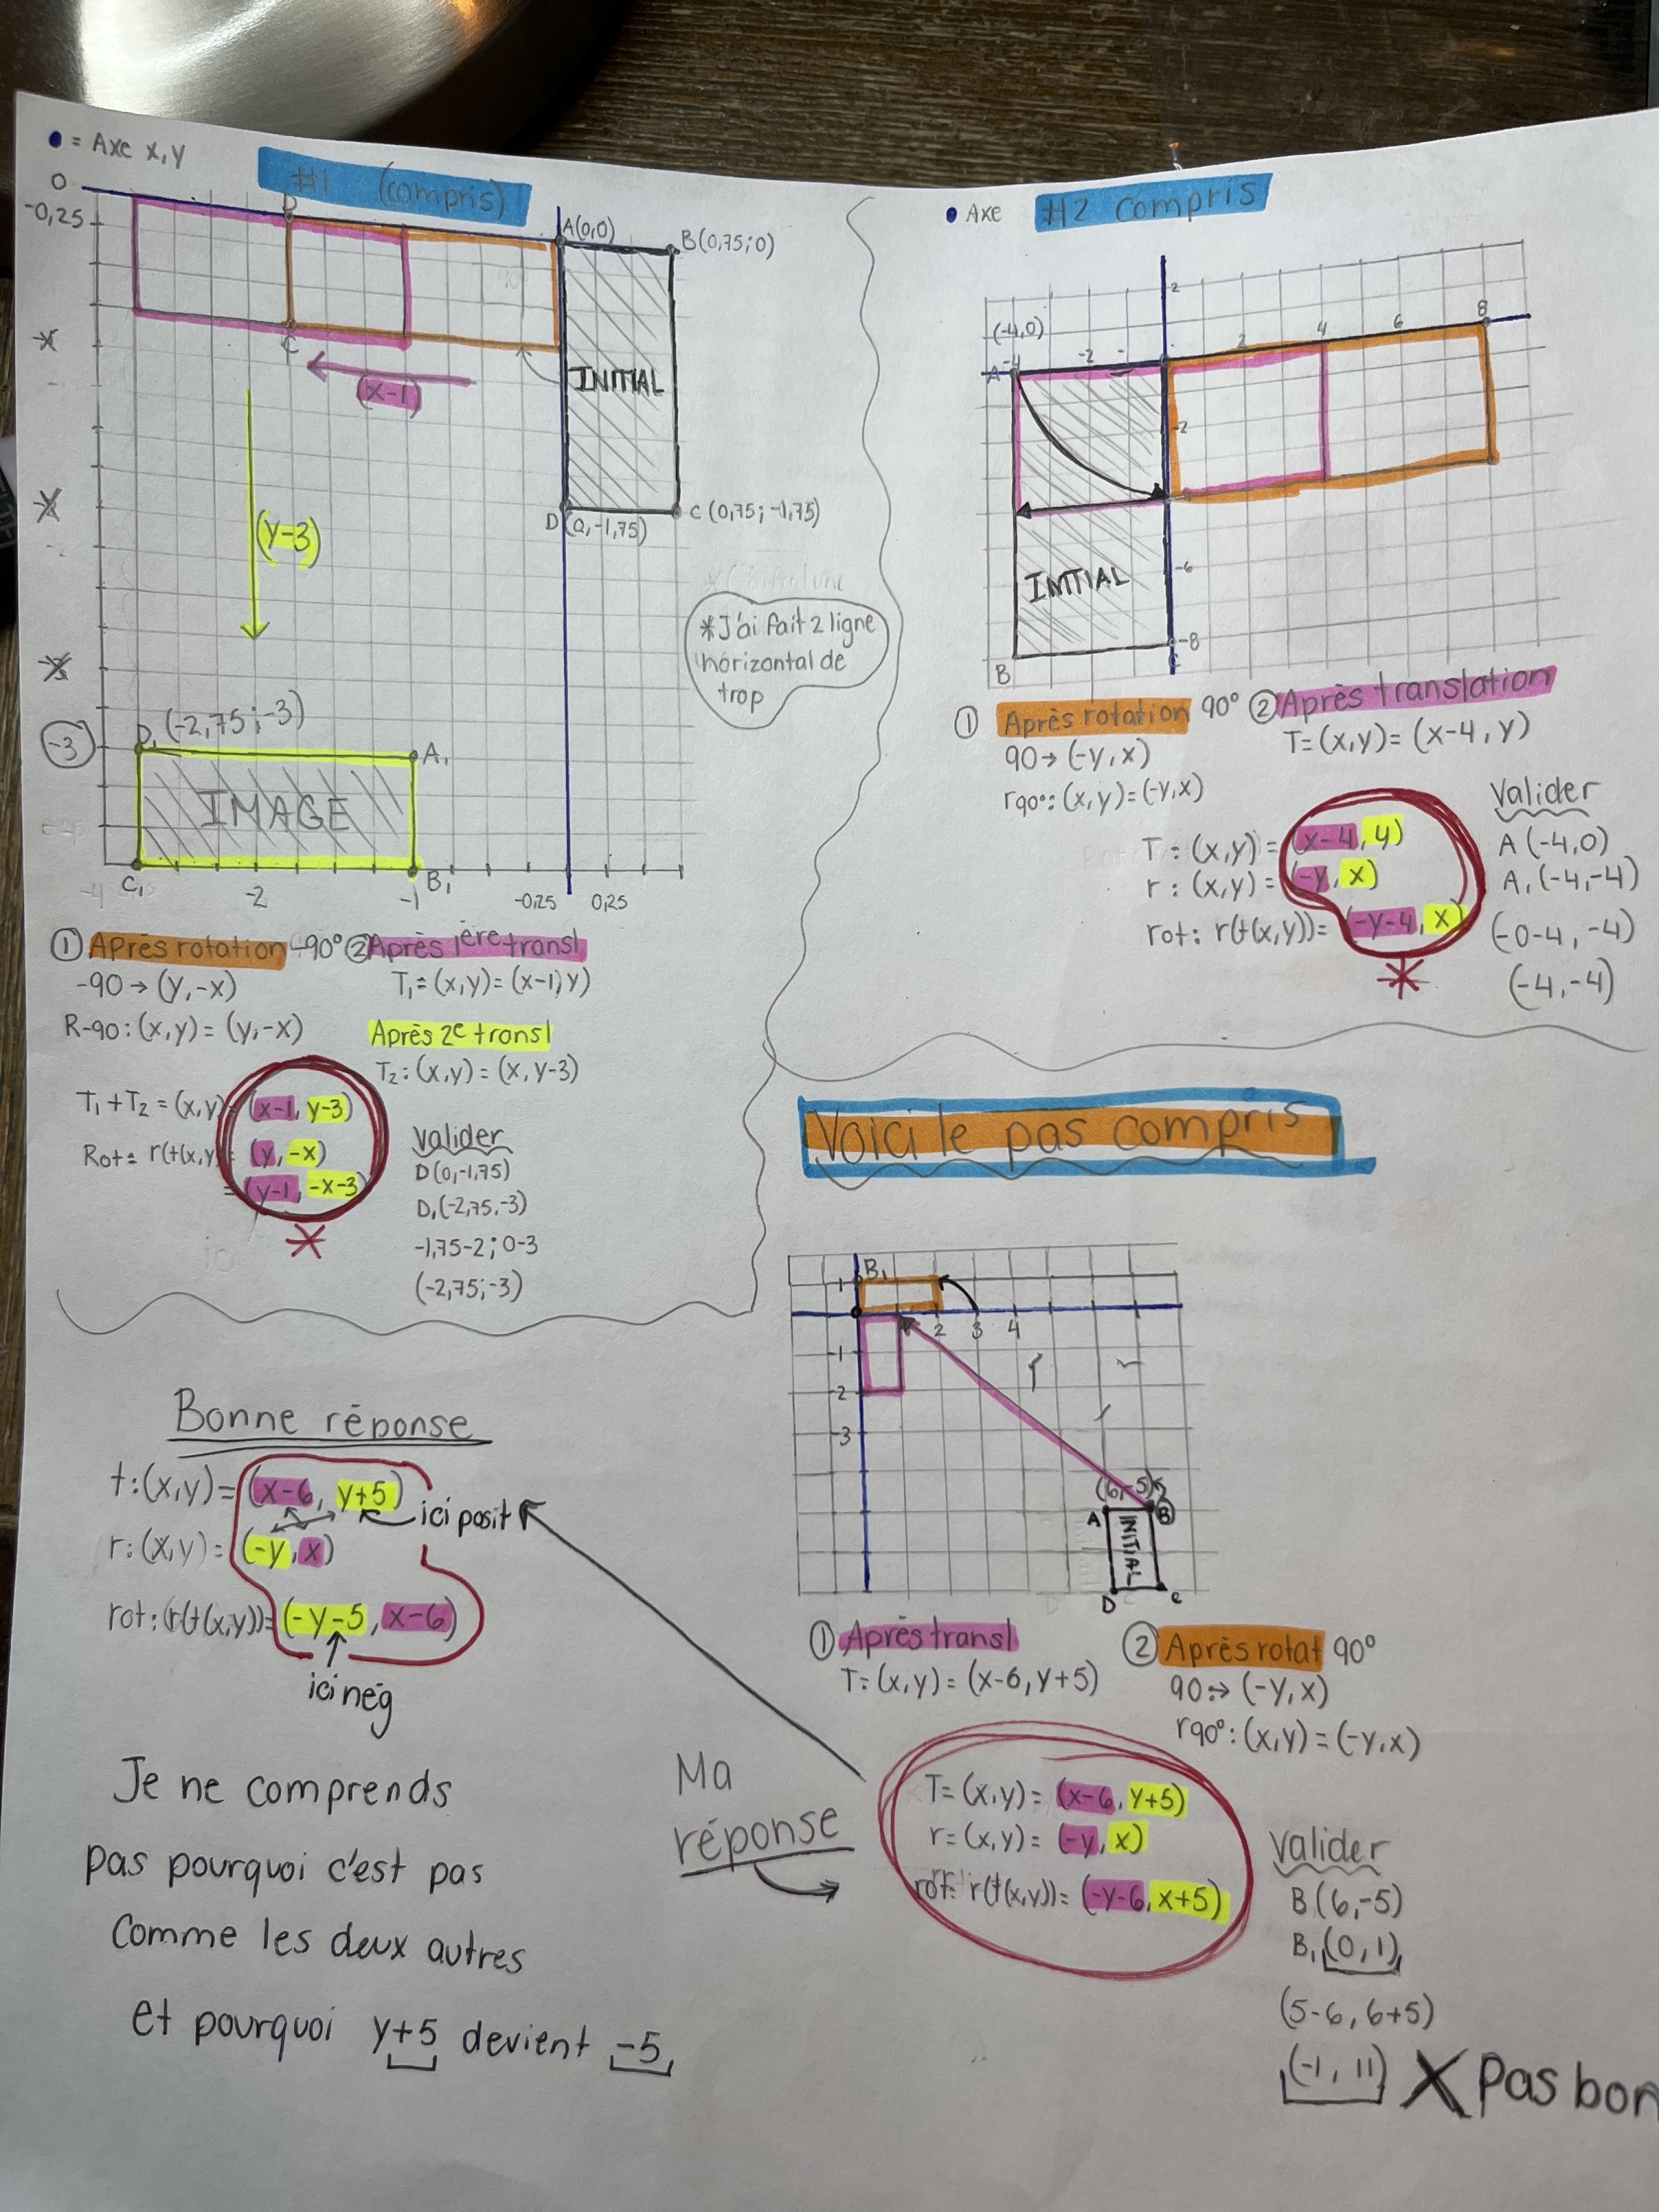 • = Axe x,y
#1 (compris)
0
-0,25
D
A(0,0)
B(0,75;0)
C
INITIAL
(x-1)
(y-3)
D(0,-1,75)
C(0,75;-1,75)
*J'ai fait 2 ligne
horizontal de
trop
-3
D₁(-2,75;-3)
A₁
IMAGE
C₁
B₁
-4
-2
-1
-0,25
0,25
① Après rotation -90° ② Après 1ère transl
-90→(y,-x)
T₁=(x,y)=(x-1,y)
R-90:(x,y)=(y,-x)
Après 2e transl
T₂:(x,y)=(x,y-3)
T₁+T₂=(x,y)=(x-1,y-3)
Rot= r(t(x,y)= (y,-x)
=(y-1,-x-3)
*
Valider
D(0,-1,75)
D₁(-2,75,-3)
-1,75-2;0-3
(-2,75;-3)
• Axe
#2 compris
2
(-4,0)
A
-4
-2
2
4
6
8
-2
-6
-8
INITIAL
B
C
① Après rotation 90° ② Après translation
90→(-y,x)
T=(x,y)=(x-4,y)
r90°:(x,y)=(-y,x)
T=(x,y)=(x-4,y)
r:(x,y)=(-y,x)
rot: r(t(x,y))=(-y-4,x)
*
Valider
A(-4,0)
A₁(-4,-4)
(-0-4,-4)
(-4,-4)
Voici le pas compris
B₁
1
2
3
4
-1
-2
-3
(6,-5)
A
B
INITIAL
D
C
① Après transl
T=(x,y)=(x-6,y+5)
② Après rotat 90°
90→(-y,x)
r90°:(x,y)=(-y,x)
Bonne réponse
t:(x,y)=(x-6,y+5)
ici posit
r:(x,y)=(-y,x)
rot:(r(t(x,y))=(-y-5,x-6)
ici nég
Je ne comprends
pas pourquoi c'est pas
comme les deux autres
et pourquoi y+5 devient -5
Ma
réponse
T=(x,y)=(x-6,y+5)
r=(x,y)=(-y,x)
rot: r(t(x,y))=(-y-6,x+5)
Valider
B(6,-5)
B₁(0,1)
(5-6,6+5)
(-1,11) X Pas bon